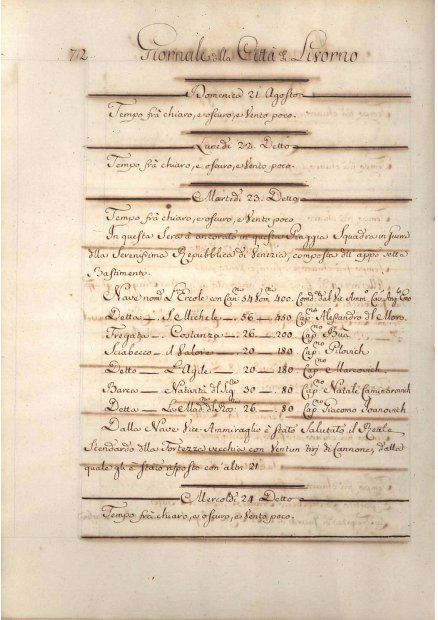 72 Giornale della Città di Livorno
Domenica 21 Agosto
Tempo frà chiaro, e oscuro, e Vento poco.
Lunedì 22 Detto
Tempo frà chiaro, e oscuro, e Vento poco.
Martedì 23 Detto
Tempo frà chiaro, e oscuro, e Vento poco
In questa Sera è ancorato in questa Spiaggia Squadra in
della Serenissima Repubblica di Venezia, composta di app.o sette
Bastimenti.
Nave nom.a S. Ercole con Can.ni 54 Vom.ni 400. Cond.a dal Vic Amm.o Cav. Ang.o Emo
Detta — S. Michele — 56 — 450 Cap.no Alessandro d'l Moro.
Fregata — Costanza — 26 — 200 Cap.no
Sciabecco — d. Valore — 20 — 180 Cap.no Pilovich
Detto — L'Agder — 20 — 180 Cap.no Marcovich
Barca — Natività del Sig.re 30 — 80 Cap.no Natali Caminarovich
Detta — La Mad.na del Ros.o 26 — 80 Cap.no Giacomo Joanovich
Dalla Nave Vice Ammiraglio è stato Salutato il Reale
Stendardo della Fortezza vecchia con Ventun tiri di Cannone, dalla
quale gli è stato risposto con altri 21
Mercoldì 24 Detto
Tempo frà chiaro, e oscuro, e Vento poco.